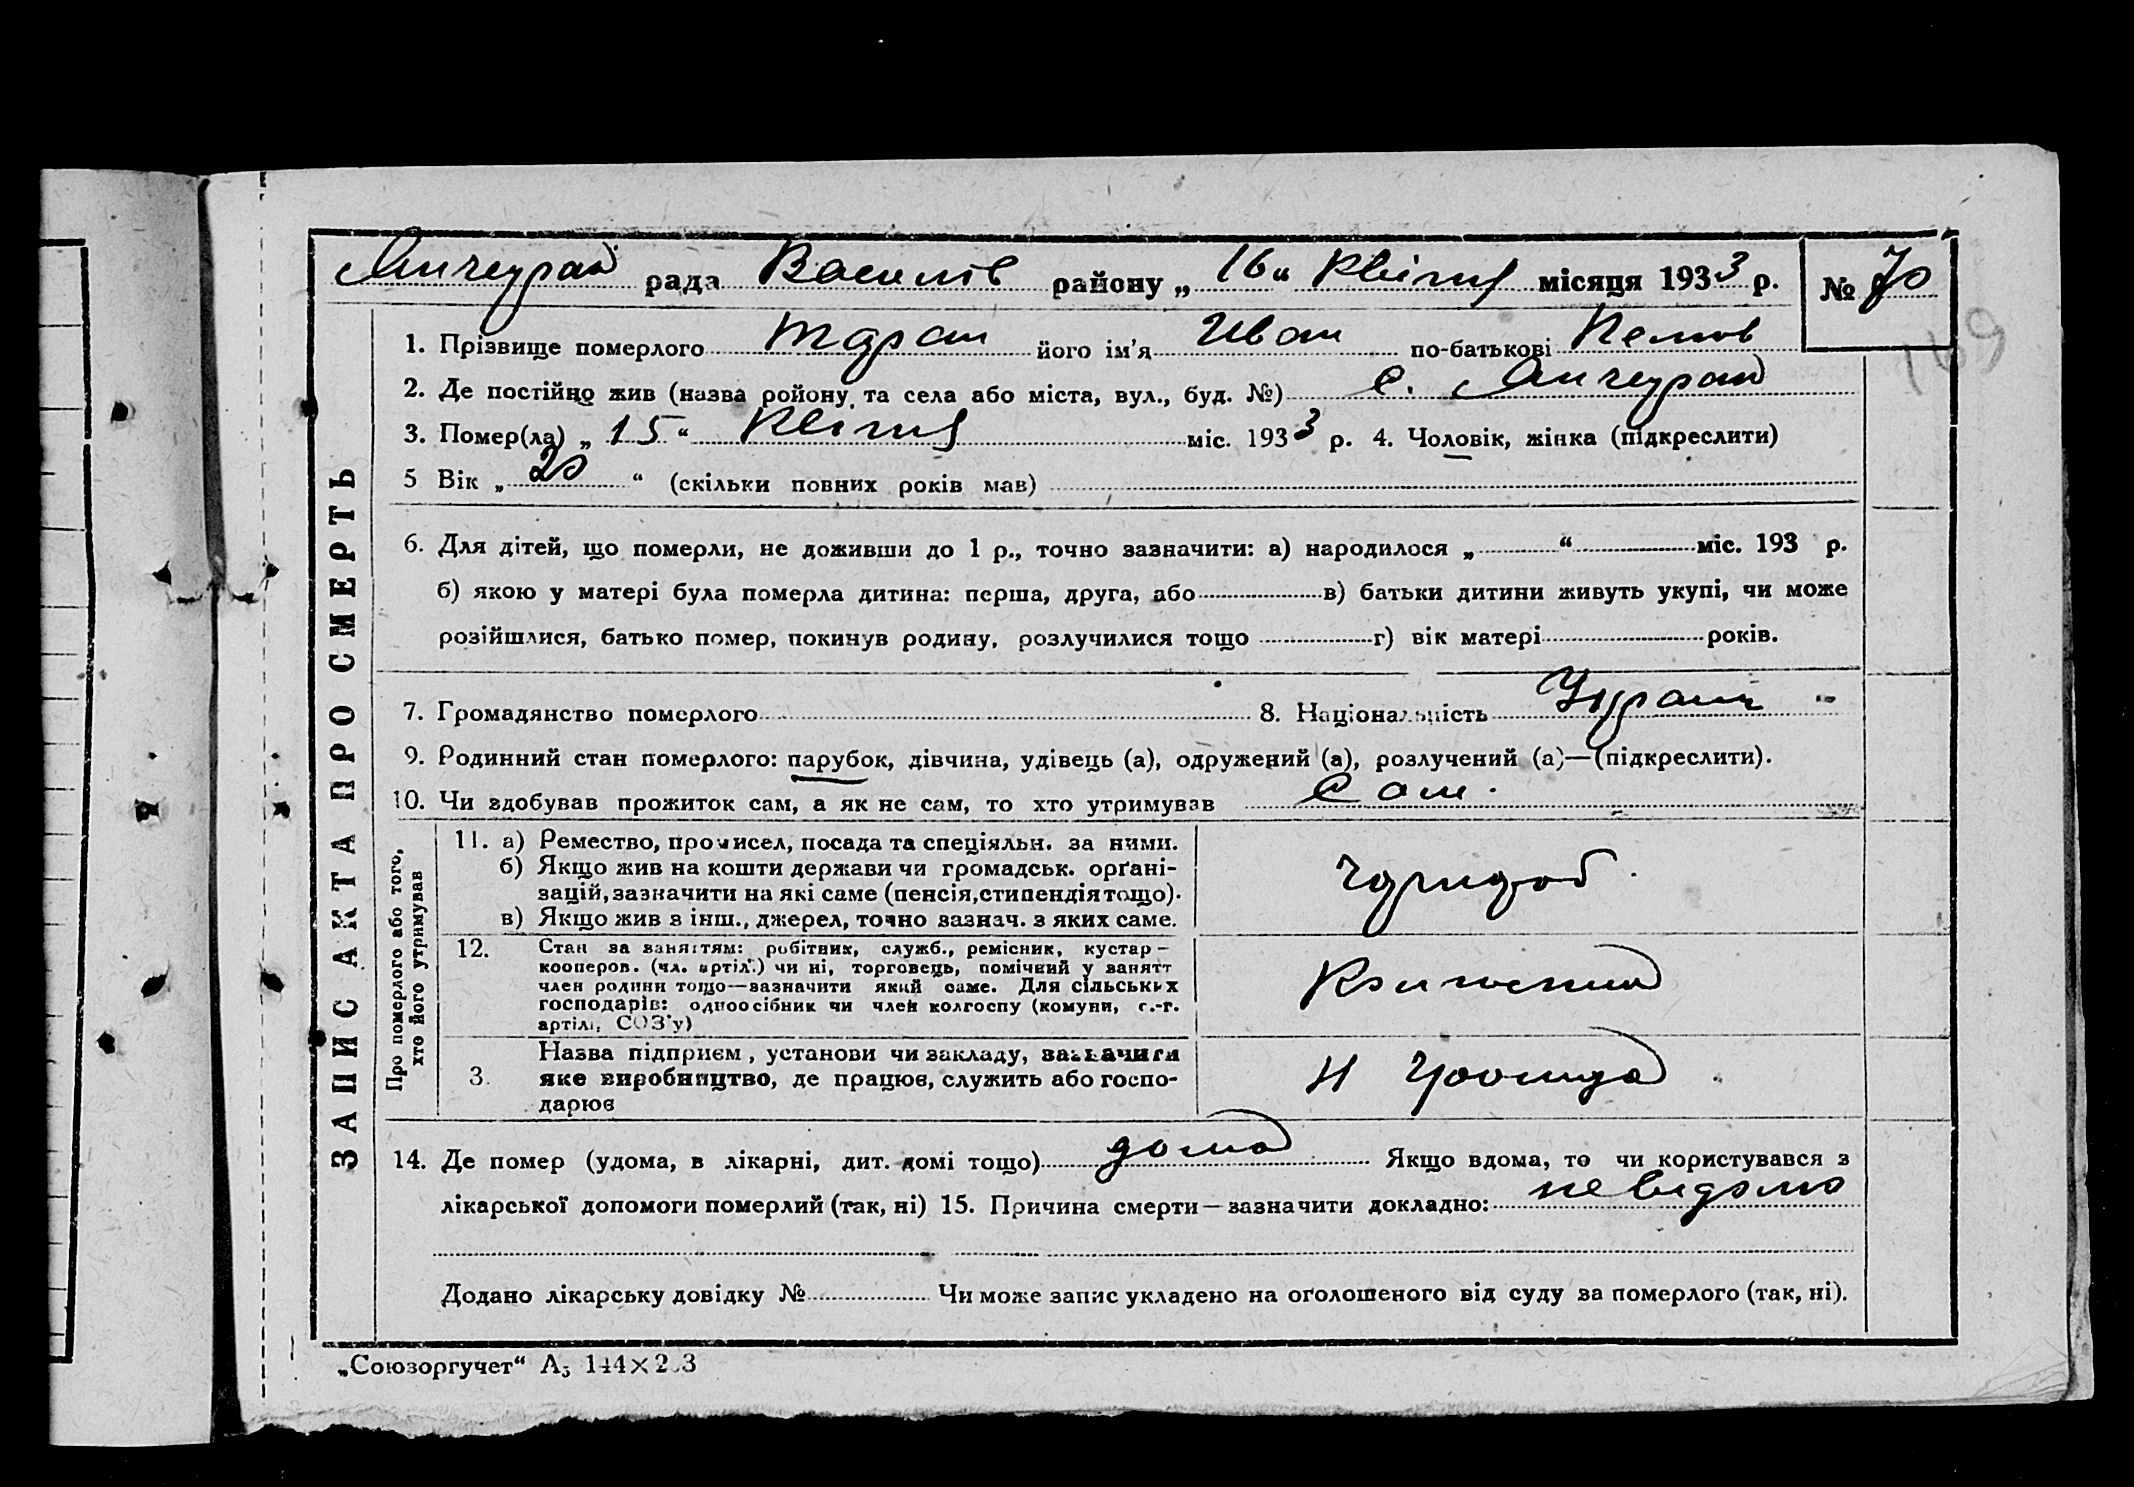 рада Василів району „ 16 “ Квітня місяця 1933 р. № 70
169
ЗАПИС АКТА ПРО СМЕРТЬ
1. Прізвище померлого його ім'я Иван по-батькові
2. Де постійно жив (назва ройону та села або міста, вул., буд. №) с.
3. Помер(ла) „ 15 “ Квітня міс. 1933 р. 4. Чоловік, жінка (підкреслити)
5 Вік „ 20 “ (скільки повних років мав)
6. Для дітей, що померли, не доживши до 1 р., точно зазначити: а) народилося „ “ міс. 193 р.
б) якою у матері була померла дитина: перша, друга, або в) батьки дитини живуть укупі, чи може
розійшлися, батько помер, покинув родину, розлучилися тощо г) вік матері років.
7. Громадянство померлого 8. Національність Україн
9. Родинний стан померлого: парубок, дівчина, удівець (а), одружений (а), розлучений (а)—(підкреслити).
10. Чи здобував прожиток сам, а як не сам, то хто утримував Сам.
Про померлого або того, хто його утримував
11. а) Ремество, промисел, посада та спеціяльн. за ними.
б) Якщо жив на кошти держави чи громадськ. орґані-
зацій, зазначити на які саме (пенсія, стипендія тощо).
в) Якщо жив з інш., джерел, точно зазнач. з яких саме.
12. Стан за заняттям: робітник, служб., ремісник, кустар—
кооперов. (чл. артіл.) чи ні, торговець, помічний у занятт
член родини тощо—зазначити який саме. Для сільських
господарів: одноосібник чи член колгоспу (комуни, с.-г.
артілі, СОЗ'у)
3. Назва підприєм, установи чи закладу, зазначити
яке виробництво, де працює, служить або госпо-
дарює
14. Де помер (удома, в лікарні, дит. домі тощо) дома Якщо вдома, то чи користувався з
лікарської допомоги померлий (так, ні) 15. Причина смерти—зазначити докладно: невідомо
Додано лікарську довідку № Чи може запис укладено на оголошеного від суду за померлого (так, ні).
„Союзоргучет“ А5 144×203